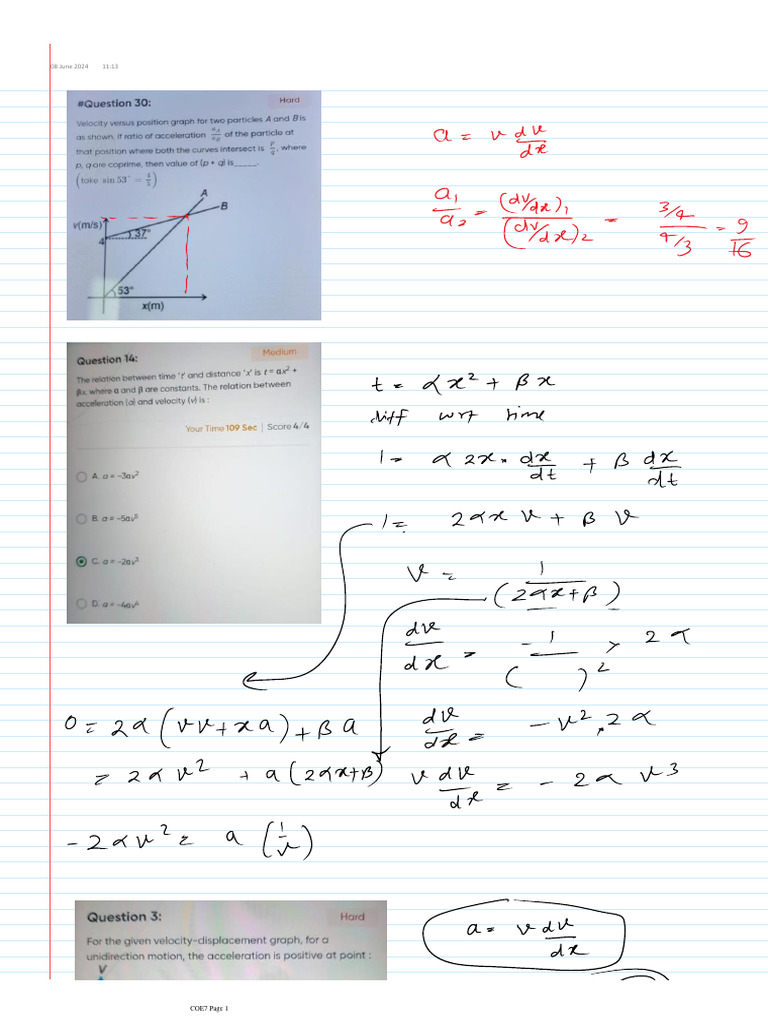 08 June 2024 11:13
#Question 30:
Hard
Velocity versus position graph for two particles A and B is
as shown. If ratio of acceleration a_A/a_B of the particle at
that position where both the curves intersect is p/q, where
p, q are coprime, then value of (p + q) is_____.
(take sin 53° = 4/5)
A
B
v(m/s)
4
37°
53°
x(m)
a = v dv/dx
a1/a2 = (dv/dx)1/(dv/dx)2 = 3/4 / 4/3 = 9/16
Question 14:
Medium
The relation between time 't' and distance 'x' is t = αx² +
βx, where α and β are constants. The relation between
acceleration (a) and velocity (v) is :
Your Time 109 Sec | Score 4/4
A. a = -3αv²
B. a = -5αv⁵
C. a = -2αv³
D. a = -4αv⁴
t = αx² + βx
diff wrt time
1 = α 2x · dx/dt + β dx/dt
1 = 2αx v + β v
v = 1/(2αx+β)
dv/dx = -1/( )² × 2α
dv/dx = -v².2α
v dv/dx = -2α v3
0 = 2α(vv+xa)+βa
= 2αv² + a(2αx+β)
-2αv² = a(1/v)
Question 3:
Hard
For the given velocity-displacement graph, for a
unidirection motion, the acceleration is positive at point :
V
a = v dv/dx
COE7 Page 1